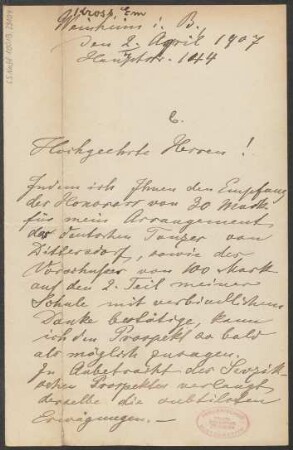 Krose, Em
Weinheim i. B.
den 2. April 1907
Hauptstr. 144
E.
Hochgeehrte Herren!
Indem ich Ihnen den Empfang
des Honorars von 30 Mark
für mein Arrangement
der deutschen Tänze von
Dittersdorf, sowie des
Vorschusses von 100 Mark
auf den 2. Teil meiner
Schule mit verbindlichem
Danke bestätige, kann
ich den Prospekt so bald
als möglich zusagen.
In Anbetracht des
Prospektes verlangt
derselbe die subtilsten
Erwägungen. —